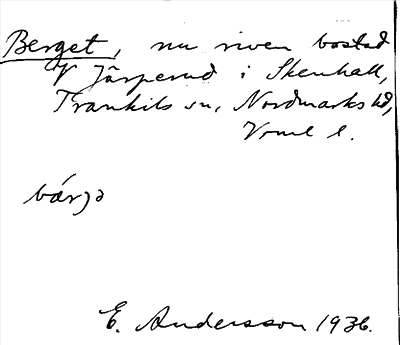 Berget, nu riven bostad
V Järperud i Skenhall,
Trankils sn, Nordmarks hd,
Vrml l.
bárjə
E. Andersson 1936.